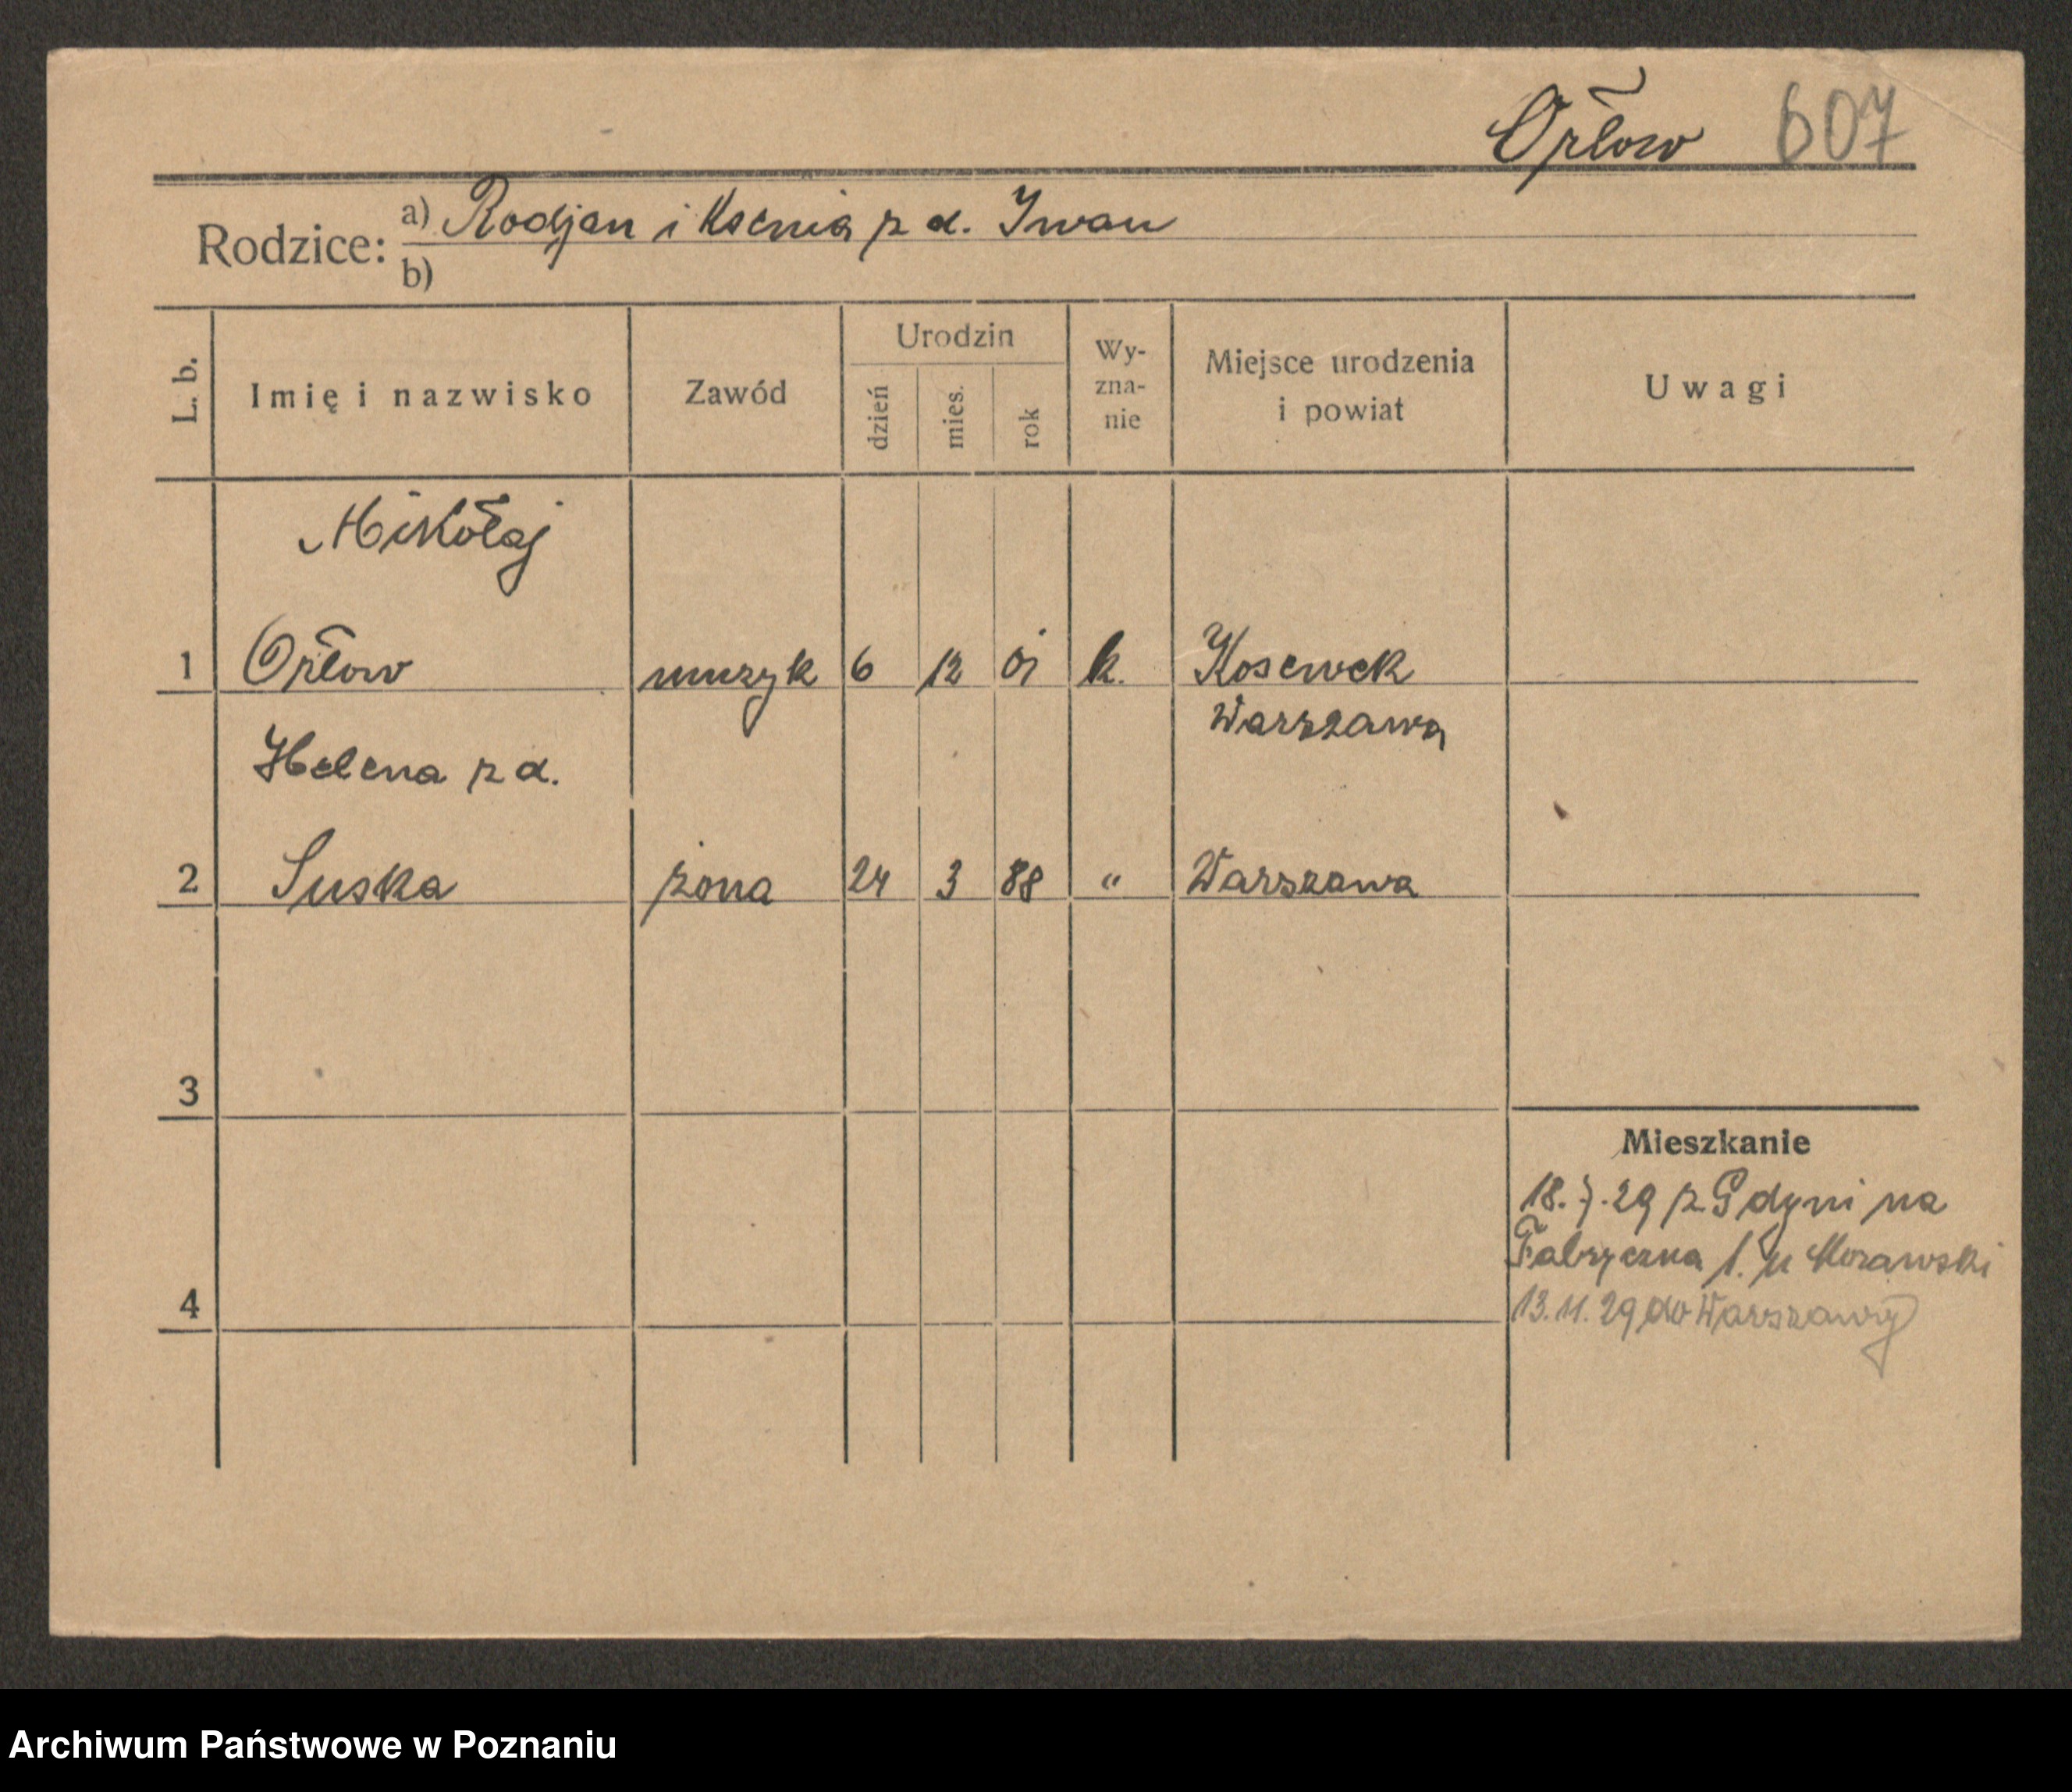 Orłow 607
Rodzice: a) Rodjan i Ksenia z d. Iwan
b)
L. b. Imię i nazwisko Zawód Urodzin dzień mies. rok Wyzna-nie Miejsce urodzenia i powiat Uwagi
Mikołaj
1 Orłow muzyk 6 12 01 k. Kosewek
Warszawa
Helena z d.
2 Suska żona 24 3 88 " Warszawa
3
Mieszkanie
18. 7. 29 z Gdyni na
Fabryczna 1. u Morawski
4 13. 11. 29 do Warszawy
Archiwum Państwowe w Poznaniu